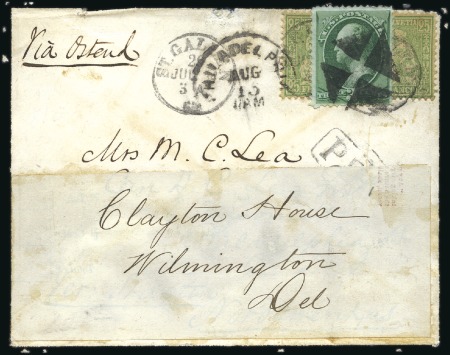 Via Ostend
ST. GAL
JUL
PHILADELP
AUG
13
Mrs M. C. Lea
Clayton House
Wilmington
Del